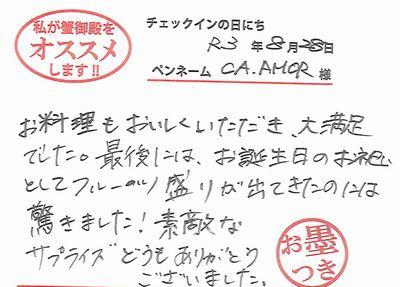 私が蟹御殿を
オススメ
します!!
チェックインの日にち
R3 年 8月 28日
ペンネーム CA.AMOR 様
お料理もおいしくいただき、大満足
でした。最後には、お誕生日のお祝い
としてフルーツ盛りが出てきたのには
驚きました！素敵な
サプライズどうもありがとう
ございました。
お墨
つき